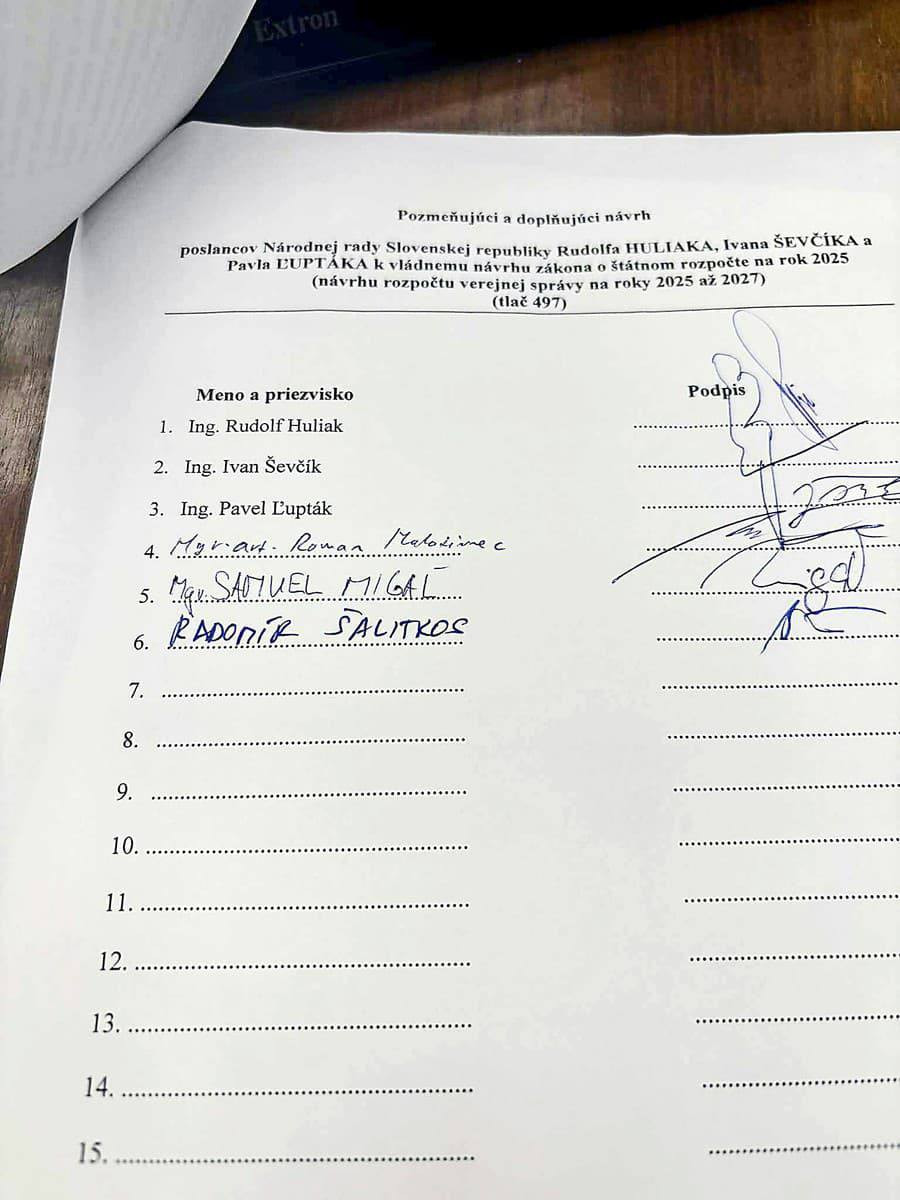 Extron
Pozmeňujúci a doplňujúci návrh
poslancov Národnej rady Slovenskej republiky Rudolfa HULIAKA, Ivana ŠEVČÍKA a
Pavla ĽUPTÁKA k vládnemu návrhu zákona o štátnom rozpočte na rok 2025
(návrhu rozpočtu verejnej správy na roky 2025 až 2027)
(tlač 497)
Meno a priezvisko Podpis
1. Ing. Rudolf Huliak
2. Ing. Ivan Ševčík
3. Ing. Pavel Ľupták
4. Mgr. art. Roman
5. Mgr. SAMUEL MIGAĽ
6. RADOMÍR ŠALITROŠ
7.
8.
9.
10.
11.
12.
13.
14.
15.